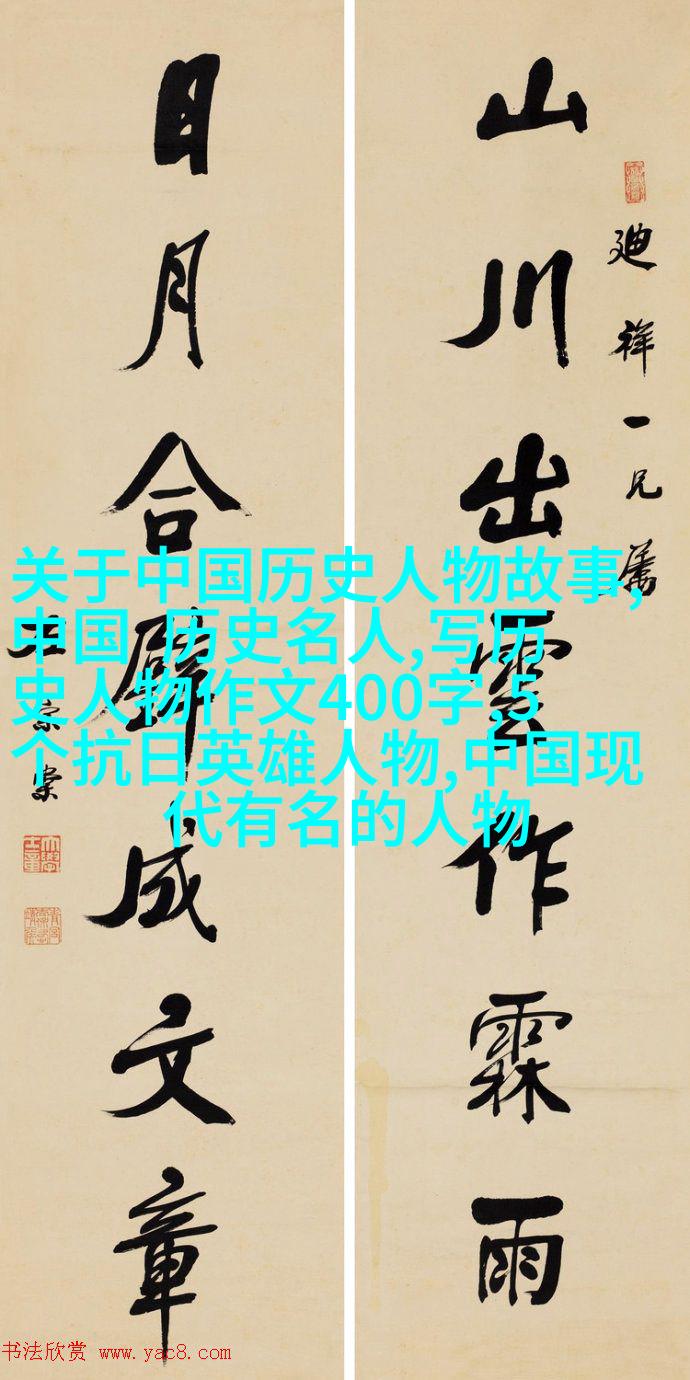 廸祥一兄屬
山川出雲作霖雨
日月合璧成文章
左宗棠
关于中国历史人物故事,
中国 历史名人,写历
史人物作文400字,5
个抗日英雄人物,中国现
代有名的人物
书法欣赏 www.yac8.com